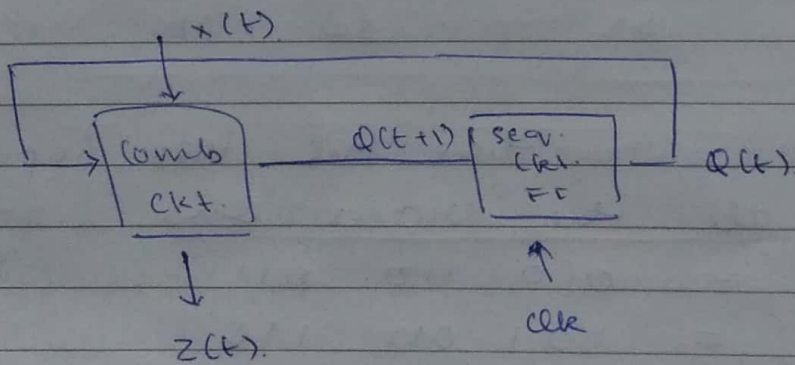 x(t)
Comb
ckt.
Q(t+1)
seq.
Ckt.
FF
Q(t)
Z(t).
clk